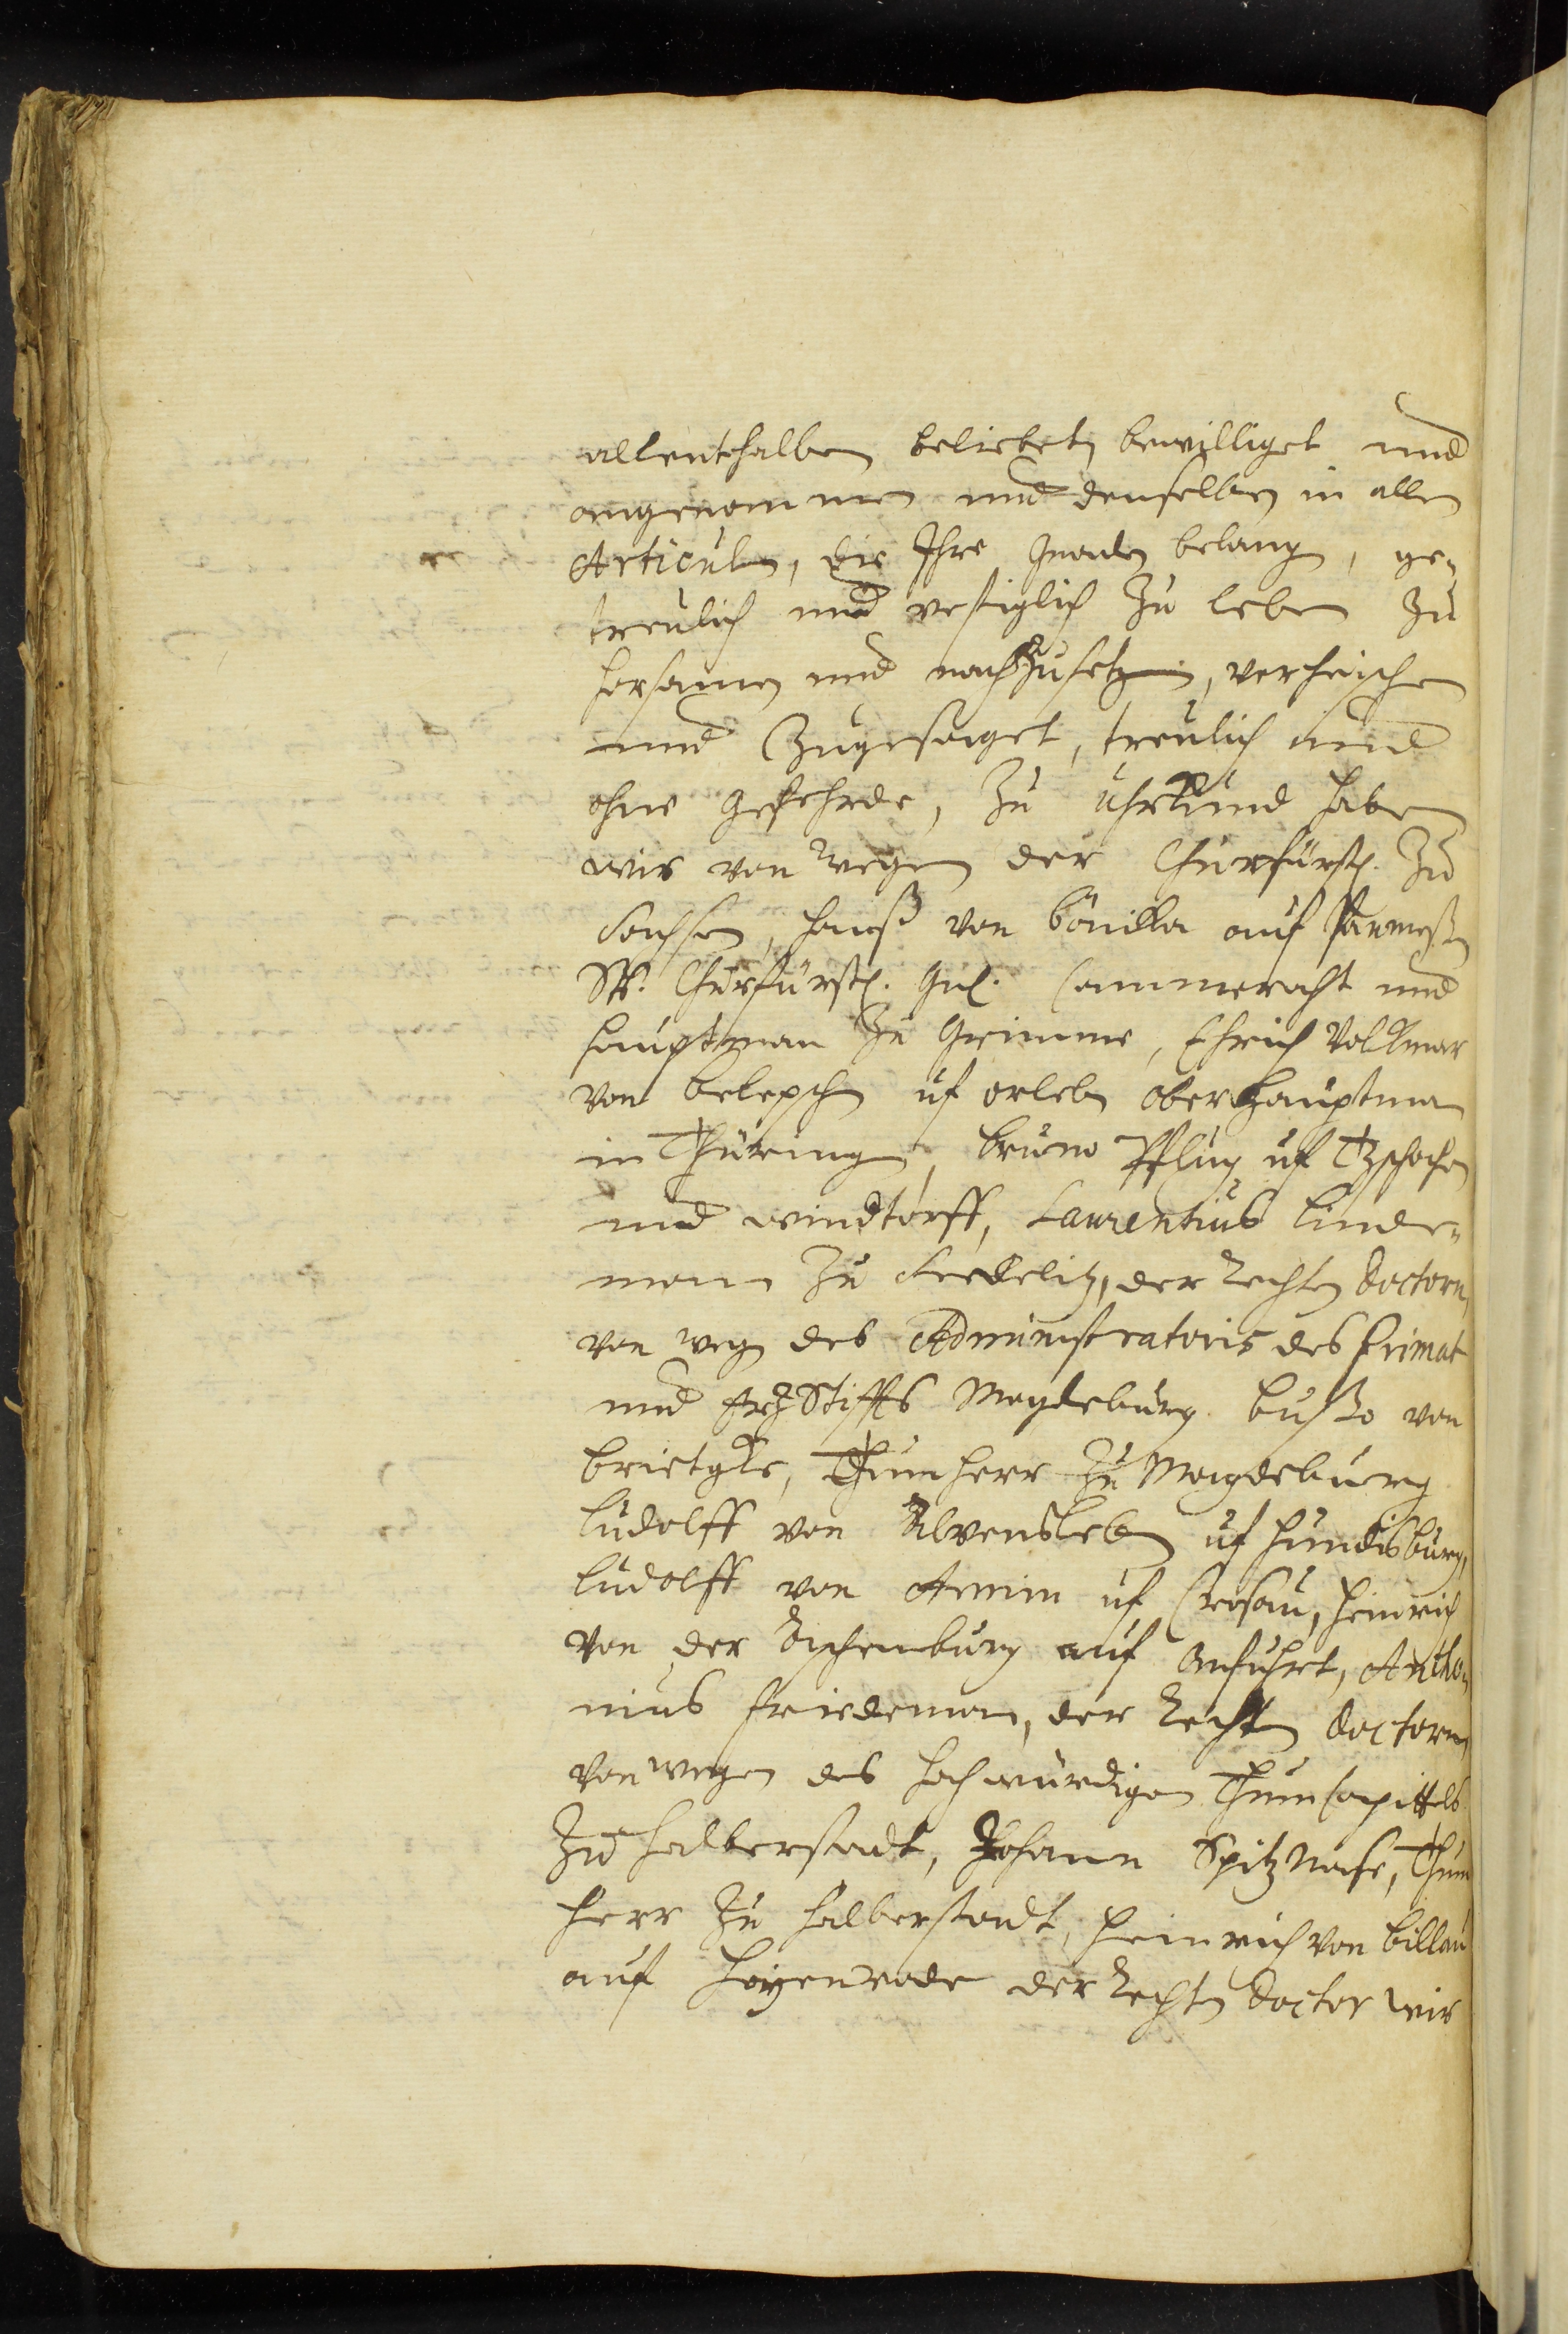 allenthalben beliebet, bewilliget und
angenommen und denselben in allen
Articuln, die Ihre Gnaden belang, ge-
treulich und vestiglich zu leben zu
horsamen und nachzusetzen, verheischen
und Zugesaget, treulich und
ohne gefehrde, Zu Uhrkund haben
wir von wegen der Churfürstl. Zu
Sachsen, Hanß von auf
Sr. Churfürstl. Gn. Cammeracht und
Hauptman Zu Grimme, Ehrich Volkmar
von Belepsch uf orleben Oberhauptman
in Thüringen, Bruno Pflug uf Tzschochen
und windtorff, Laurentius Linde-
mann Zu Sedelitz, der Rechten Doctorn,
von wegen des Administratoris des Primat
und ErzStiffts Magdeburg. Busso von
Brietzke, Thumherr Zu Magdeburg
Ludolff von Alvensleben uf Hundisburg,
Ludolff von Arnim uf Crosau, Heinrich
von der Aschenburg auf Anfuhrt, Antho-
nius Friedeman, der Rechten Doctorn,
von wegen des hochwürdigen Thum Capittels
Zu Halberstadt, Johann Spitz Nase, Thum
herr Zu Halberstadt, Heinrich von Billau
auf Hoyenrode der Rechten Doctor wir